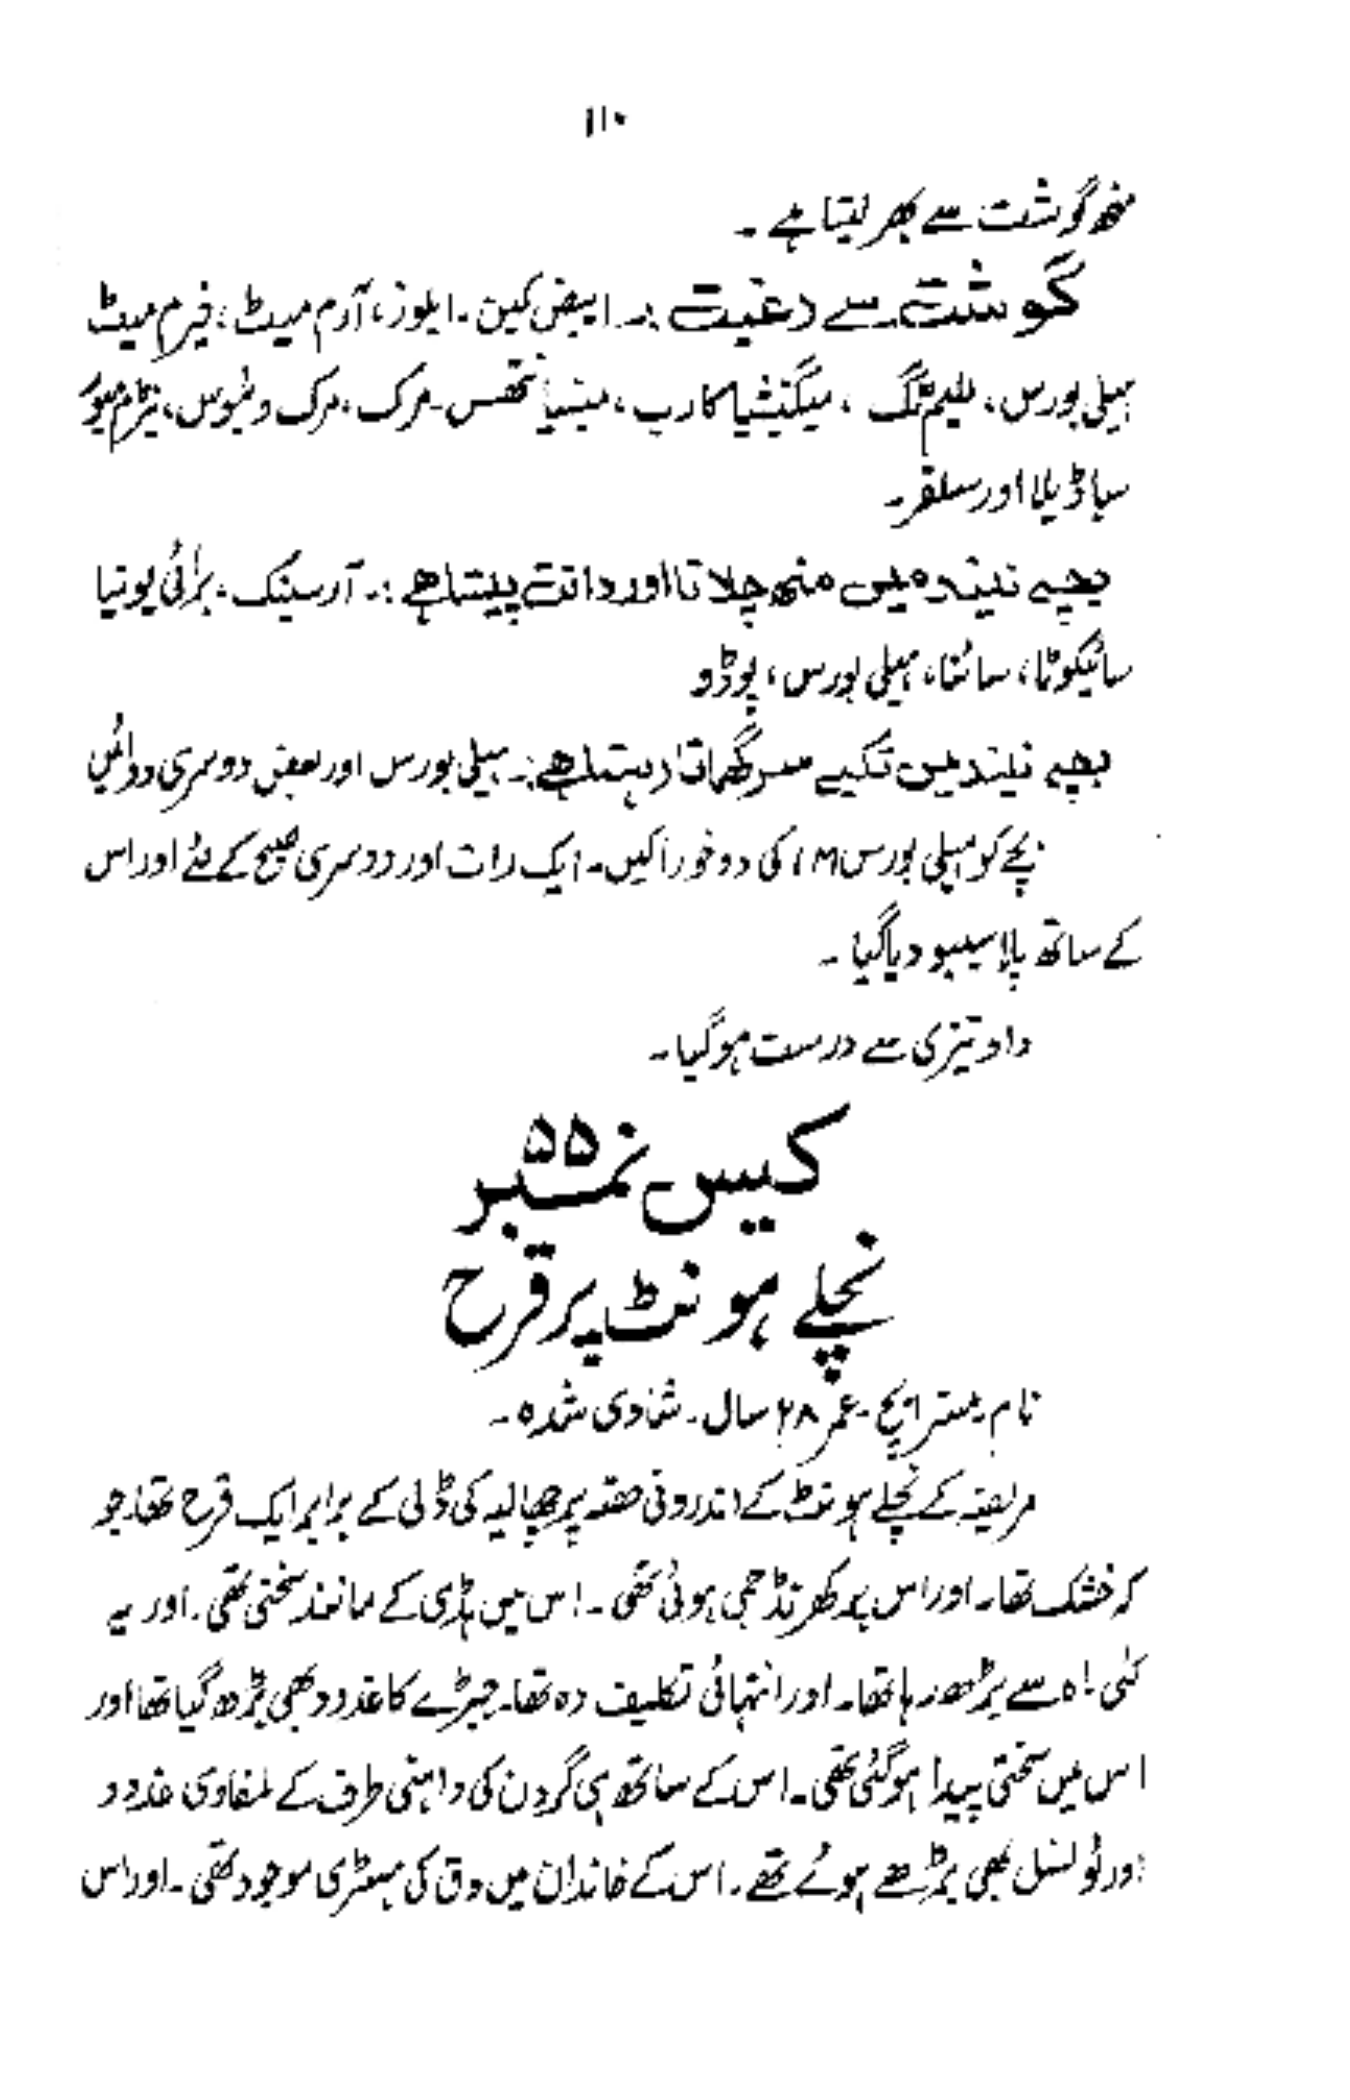 ۱۱۰
منھ گوشت سے بھر لیتا ہے ۔
گوشت سے رغبت :۔ ابیض کین ۔ ایلوز، آرم میٹ، فیرم میٹ
ہیلی بورس، للیم ٹگ ، میگنیشیا کارب ، مینیانتھس ۔ مرک ، مرک وئیوس، نیٹرم میور
سباڈیلا اور سلفر ۔
بچہ نیند میں منھ چلاتا اور دانت پیستا ہے :۔ آرسینک ، برائی یونیا
سائیکوٹا، سائنا، ہیلی بورس، پوڈو
بچہ نیند میں تکیے سر گھماتا رہتا ہے :۔ ہیلی بورس اور بعض دوسری دوائیں
بچے کو ہیلی بورس 1M کی دو خوراکیں ۔ ایک رات اور دوسری صبح کے لئے اور اس
کے ساتھ پلاسیبو دیا گیا ۔
داد تیزی سے درست ہو گیا ۔
کیس نمبر ۵۵
نچلے ہونٹ پر قرح
نام ۔ مسز ایچ ۔ عمر ۲۸ سال ۔ شادی شدہ ۔
مریضہ کے نچلے ہونٹ کے اندرونی حصّہ پر چھالیہ کی ڈلی کے برابر ایک قرح تھا۔ جو
کہ خشک تھا۔ اور اس پر کھرنڈ جمی ہوئی تھی ۔ اس میں ہڈی کے مانند سختی تھی ۔ اور یہ
کئی ماہ سے بڑھ رہا تھا۔ اور انتہائی تکلیف دہ تھا۔ جبڑے کا غدود بھی بڑھ گیا تھا اور
اس میں سختی پیدا ہو گئی تھی ۔ اس کے ساتھ ہی گردن کی داہنی طرف کے لمفاوی غدود
اور ٹونسل بھی بڑھے ہوئے تھے ۔ اس کے خاندان میں دق کی ہسٹری موجود تھی ۔ اور اس